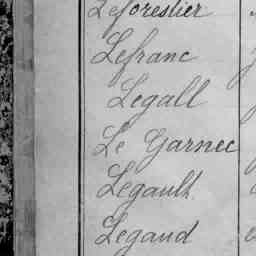 Leforestier
Lefranc
Legall
Le Garnec
Legault
Legaud